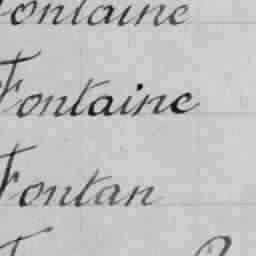 Fontaine
Fontaine
Fontan